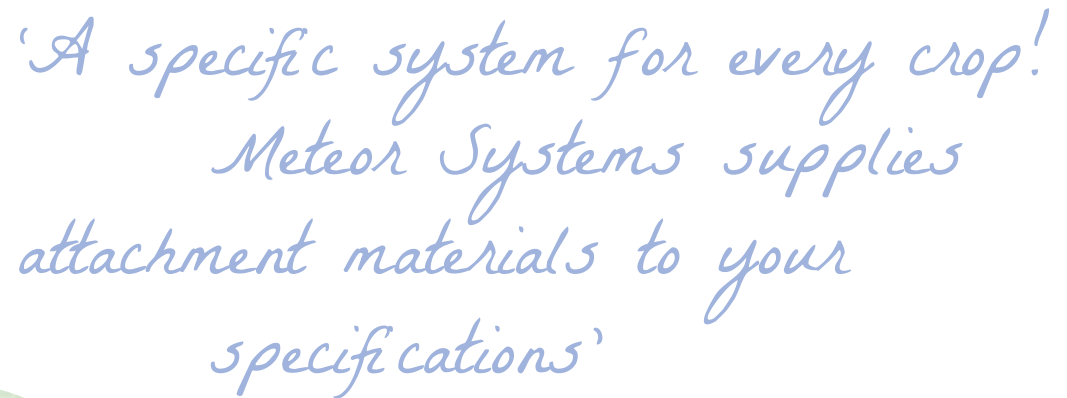 ‘A specific system for every crop!
Meteor Systems supplies
attachment materials to your
specifications’